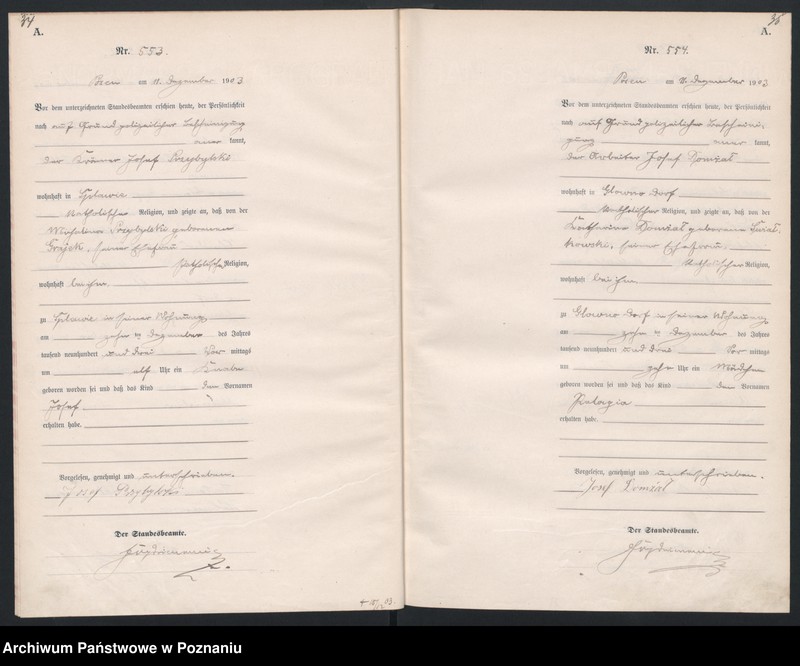 34
A.
Nr. 553.
Posen am 11. Dezember 1903
Vor dem unterzeichneten Standesbeamten erschien heute, der Persönlichkeit
nach auf Grund polizeilicher Bescheinigung
kannt,
der Krämer Josef Przybylski
wohnhaft in
katholischer Religion, und zeigte an, daß von der
Przybylski geborenen
seiner Ehefrau
katholischer Religion,
wohnhaft bei ihm
zu in seiner Wohnung
am zehnten Dezember des Jahres
tausend neunhundert und drei Vor mittags
um elf Uhr ein Knabe
geboren worden sei und daß das Kind den Vornamen
Josef
erhalten habe.
Vorgelesen, genehmigt und unterschrieben.
Josef Przybylski
Der Standesbeamte.
35
A.
Nr. 554.
Posen am 11. Dezember 1903
Vor dem unterzeichneten Standesbeamten erschien heute, der Persönlichkeit
nach auf Grund polizeilicher Bescheini-
gung kannt,
der Arbeiter Josef
wohnhaft in Glowno Dorf
katholischer Religion, und zeigte an, daß von der
Katharina geborene
kowski, seiner Ehefrau,
katholischer Religion,
wohnhaft bei ihm
zu Glowno Dorf in seiner Wohnung
am zehnten Dezember des Jahres
tausend neunhundert und drei Vor mittags
um zehn Uhr ein Mädchen
geboren worden sei und daß das Kind den Vornamen
Pelagia
erhalten habe.
Vorgelesen, genehmigt und unterschrieben.
Josef
Der Standesbeamte.
Archiwum Państwowe w Poznaniu